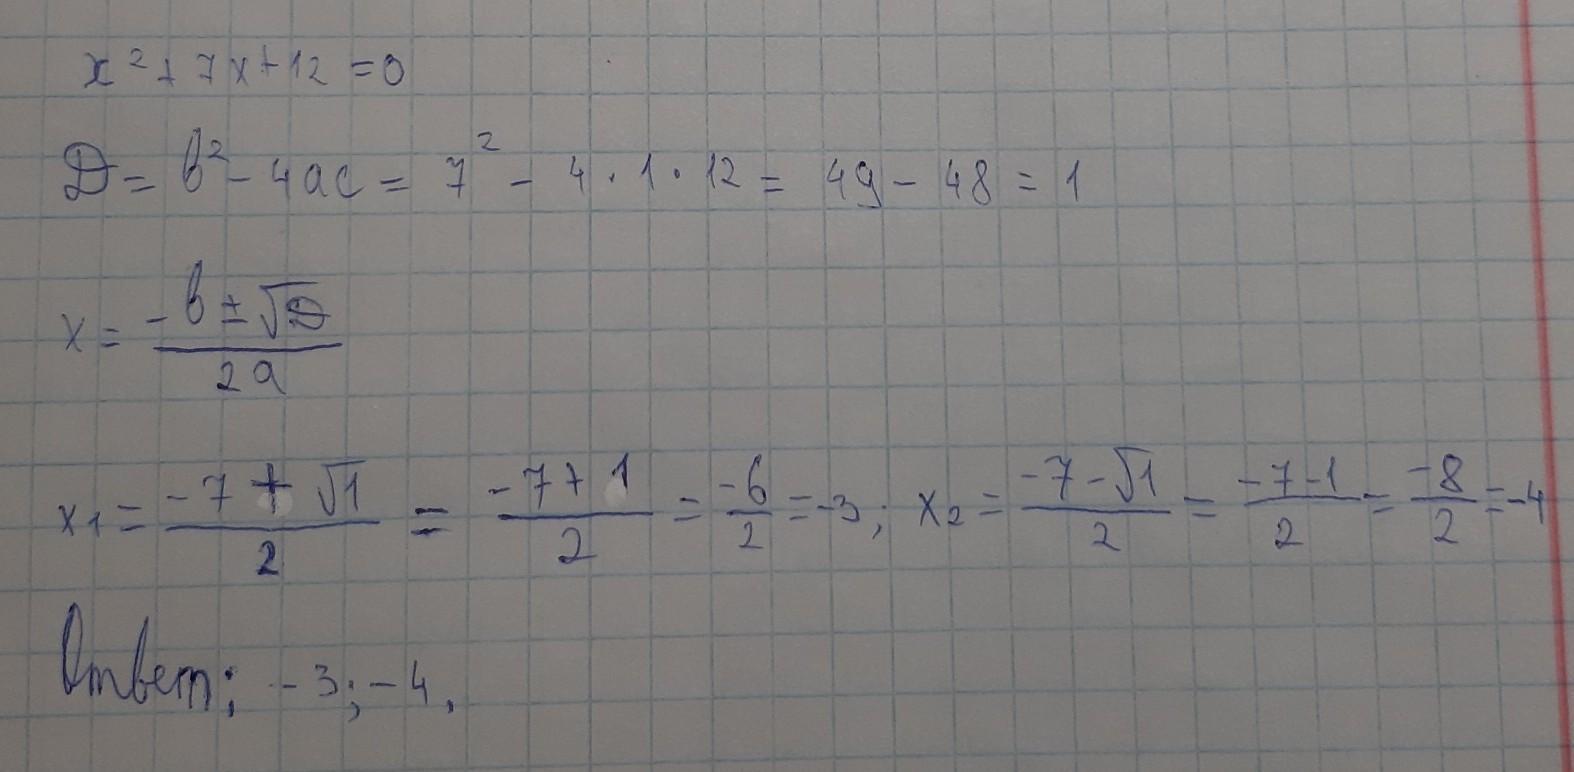 x² + 7x + 12 = 0
D = b² - 4ac = 7² - 4 · 1 · 12 = 49 - 48 = 1
x = (-b ± √D) / 2a
x₁ = (-7 + √1) / 2 = (-7 + 1) / 2 = -6/2 = -3; x₂ = (-7 - √1) / 2 = (-7 - 1) / 2 = -8/2 = -4
Ответ: -3; -4.